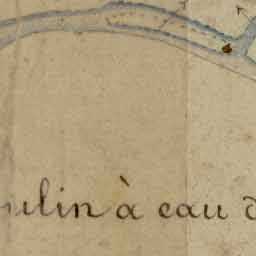 ulin à eau d